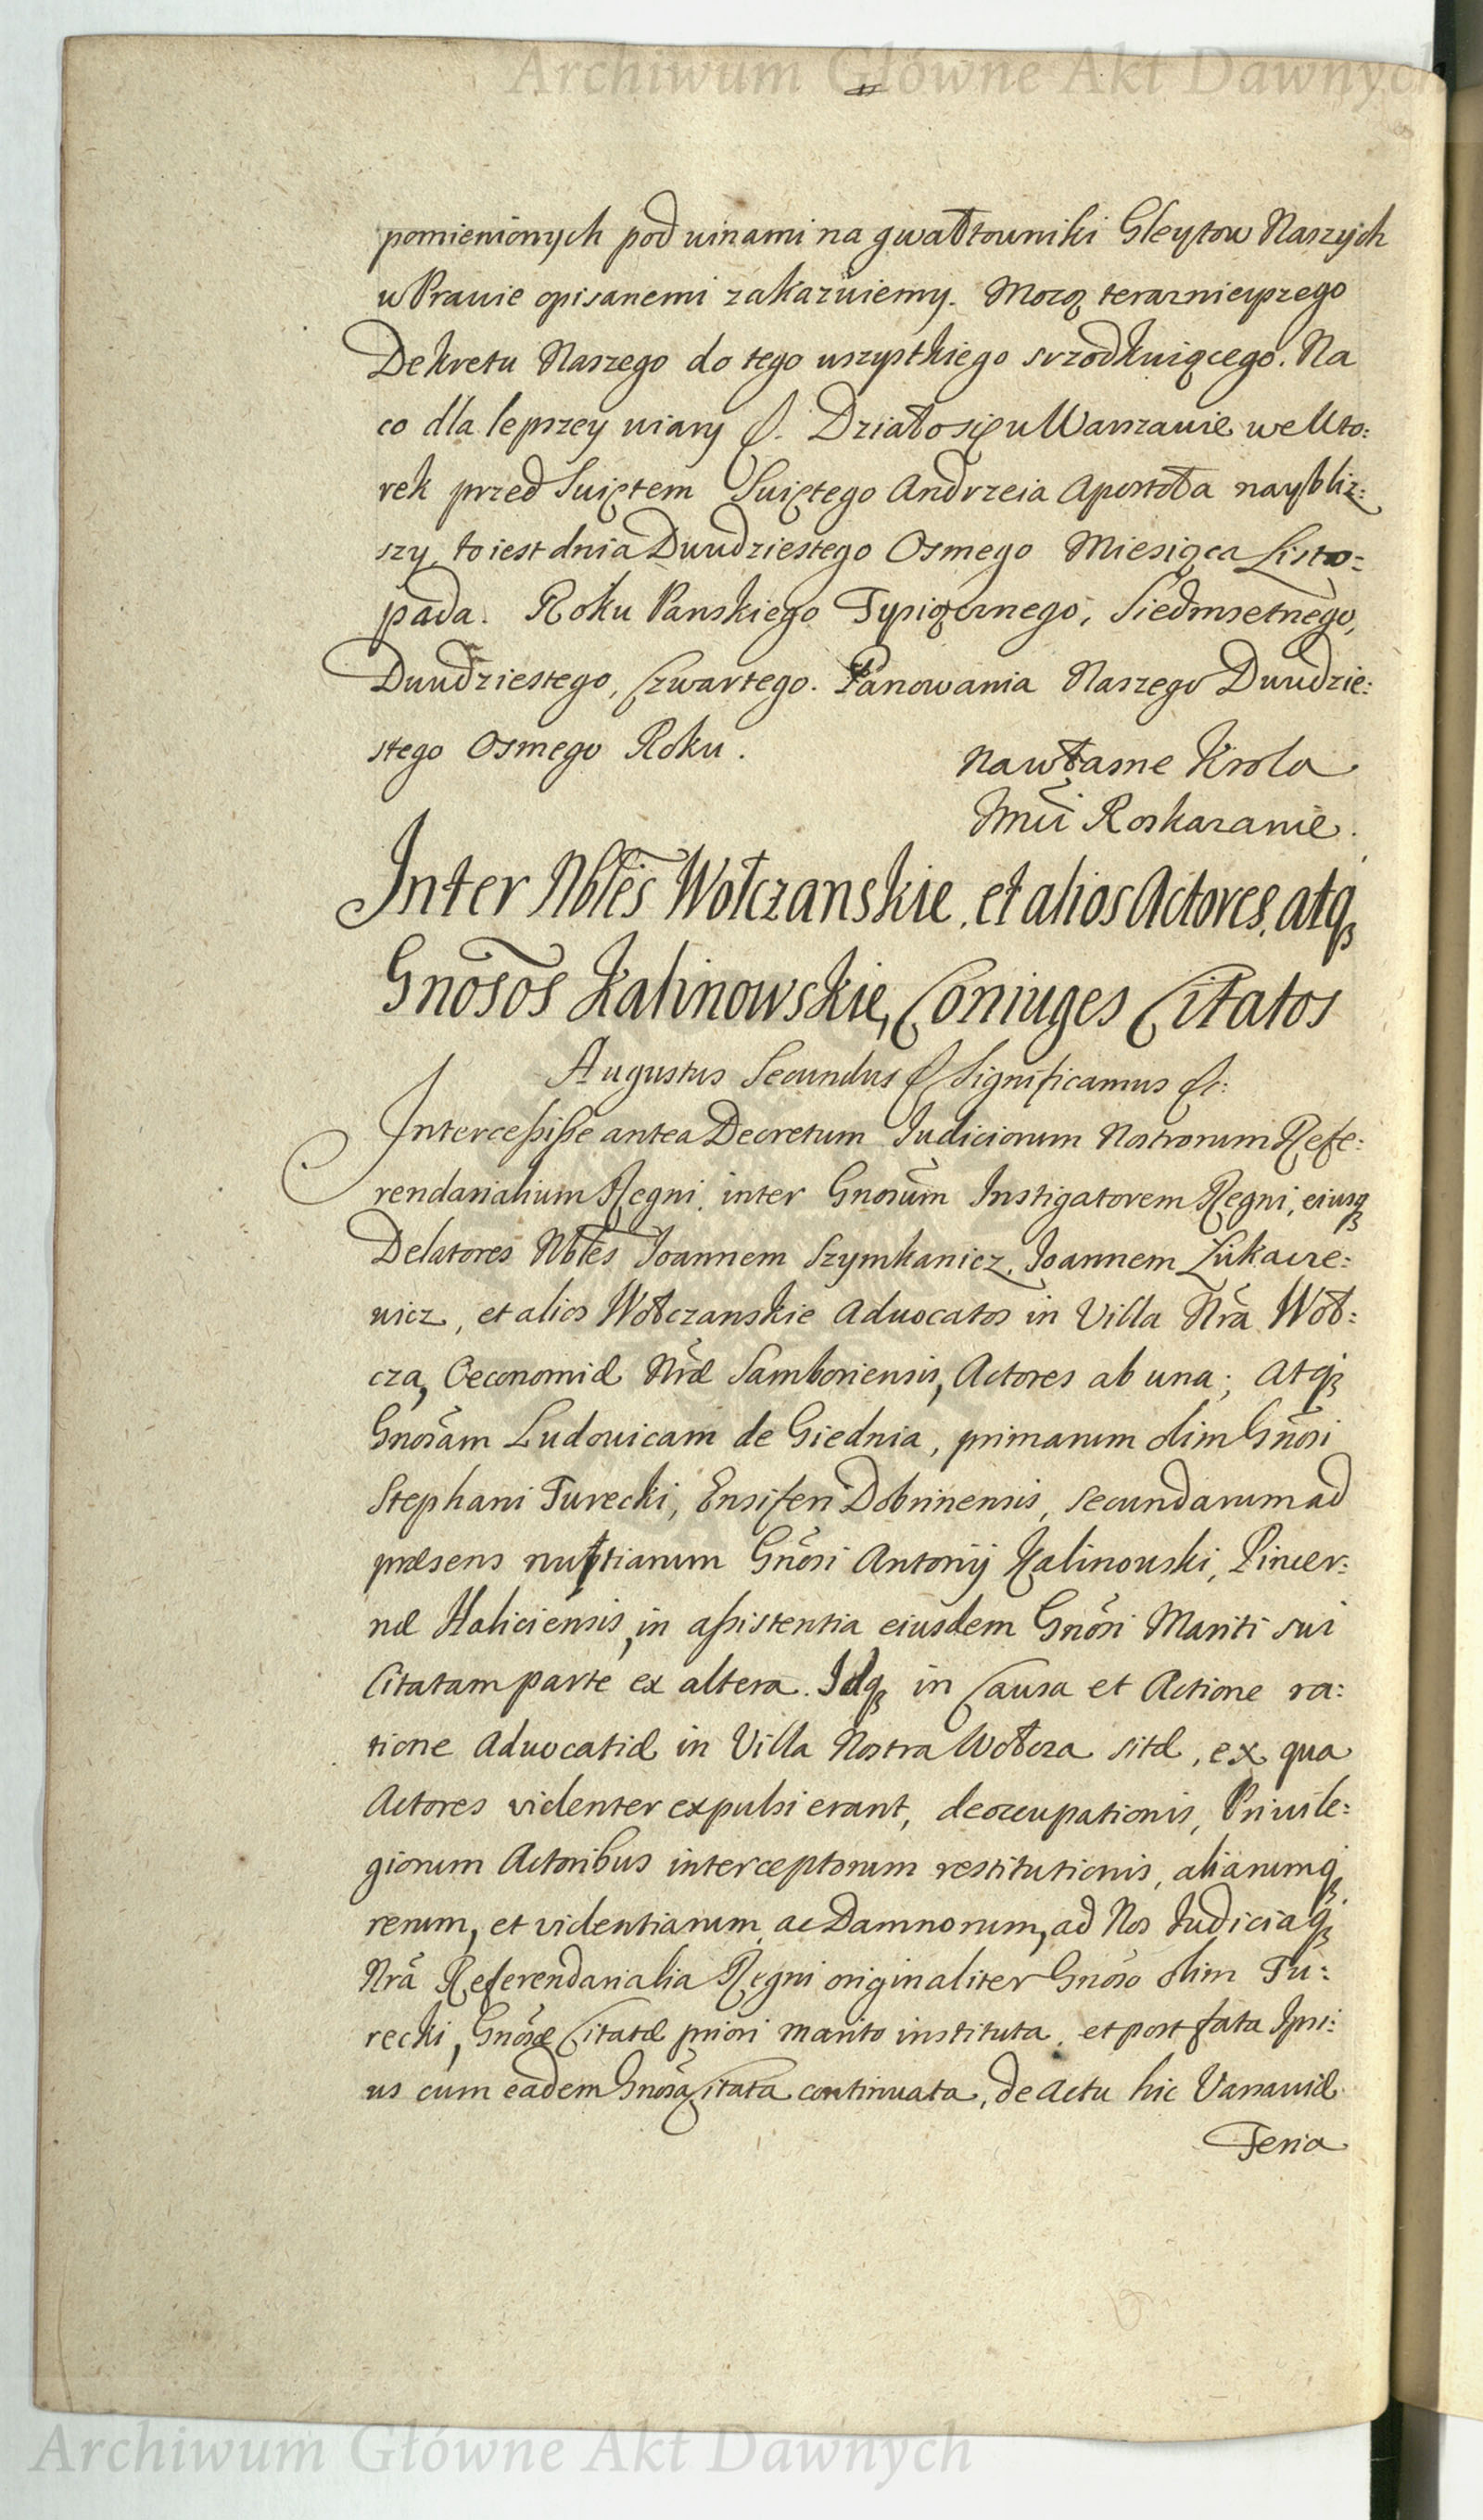 Archiwum Główne Akt Dawnych
pomienionych pod winami na gwałtowniki Gleytow Naszych
w Prawie opisanemi zakazuiemy. Mocą teraznieyszego
Dekretu Naszego do tego wszystkiego srzodkuiącego. Na
co dla lepszey wiary &. Działo się w Warszawie we Wto:
rek przed Swiętem Swiętego Andrzeia Apostoła naybliz:
szy, to iest dnia Dwudziestego Osmego Miesiąca Listo:
pada. Roku Panskiego Tysiącznego, Siedmsetnego,
Dwudziestego, Czwartego. Panowania Naszego Dwudzie:
stego Osmego Roku.
Na własne Krola
Jmci Roskazanie.
Inter Nbles Wołczanskie, et alios Actores, atq
Gnosos Kalinowskie, Coniuges Citatos
Augustus Secundus & Significamus &c:
Intercessisse antea Decretum Iudiciorum Nostrorum Refe:
rendarialium Regni, inter Gnosum Instigatorem Regni, eiusq
Delatores Nbles Joannem Szymkanicz, Joannem Łukaue:
wicz, et alios Wołczanskie Advocatos in Villa Nra Woł:
cza, Oeconomiæ Nræ Samboriensis, Actores ab una; Atq
Gnosam Ludovicam de Giednia, primarum olim Gnosi
Stephani Turecki, Ensiferi Dobrinensis, secundarum ad
præsens nuptiarum Gnosi Antonij Kalinowski, Pincer:
næ Haliciensis, in assistentia eiusdem Gnosi Mariti sui
Citatam parte ex altera. Idq in Causa et Actione ra:
tione Advocatiæ in Villa Nostra Wołcza sitæ, ex qua
Actores violenter expulsi erant, deoccupationis, Privile:
giorum Actoribus interceptorum restitutionis, aliarumq
rerum, et violentiarum ac Damnorum, ad Nos Iudiciaq
Nra Referendarialia Regni originaliter Gnoso olim Tu:
recki, Gnosæ Citatæ priori marito instituta, et post fata Ipsi:
us cum eadem Gnosa Citata continuata, de Actu hic Varsaviæ
Feria
Archiwum Główne Akt Dawnych